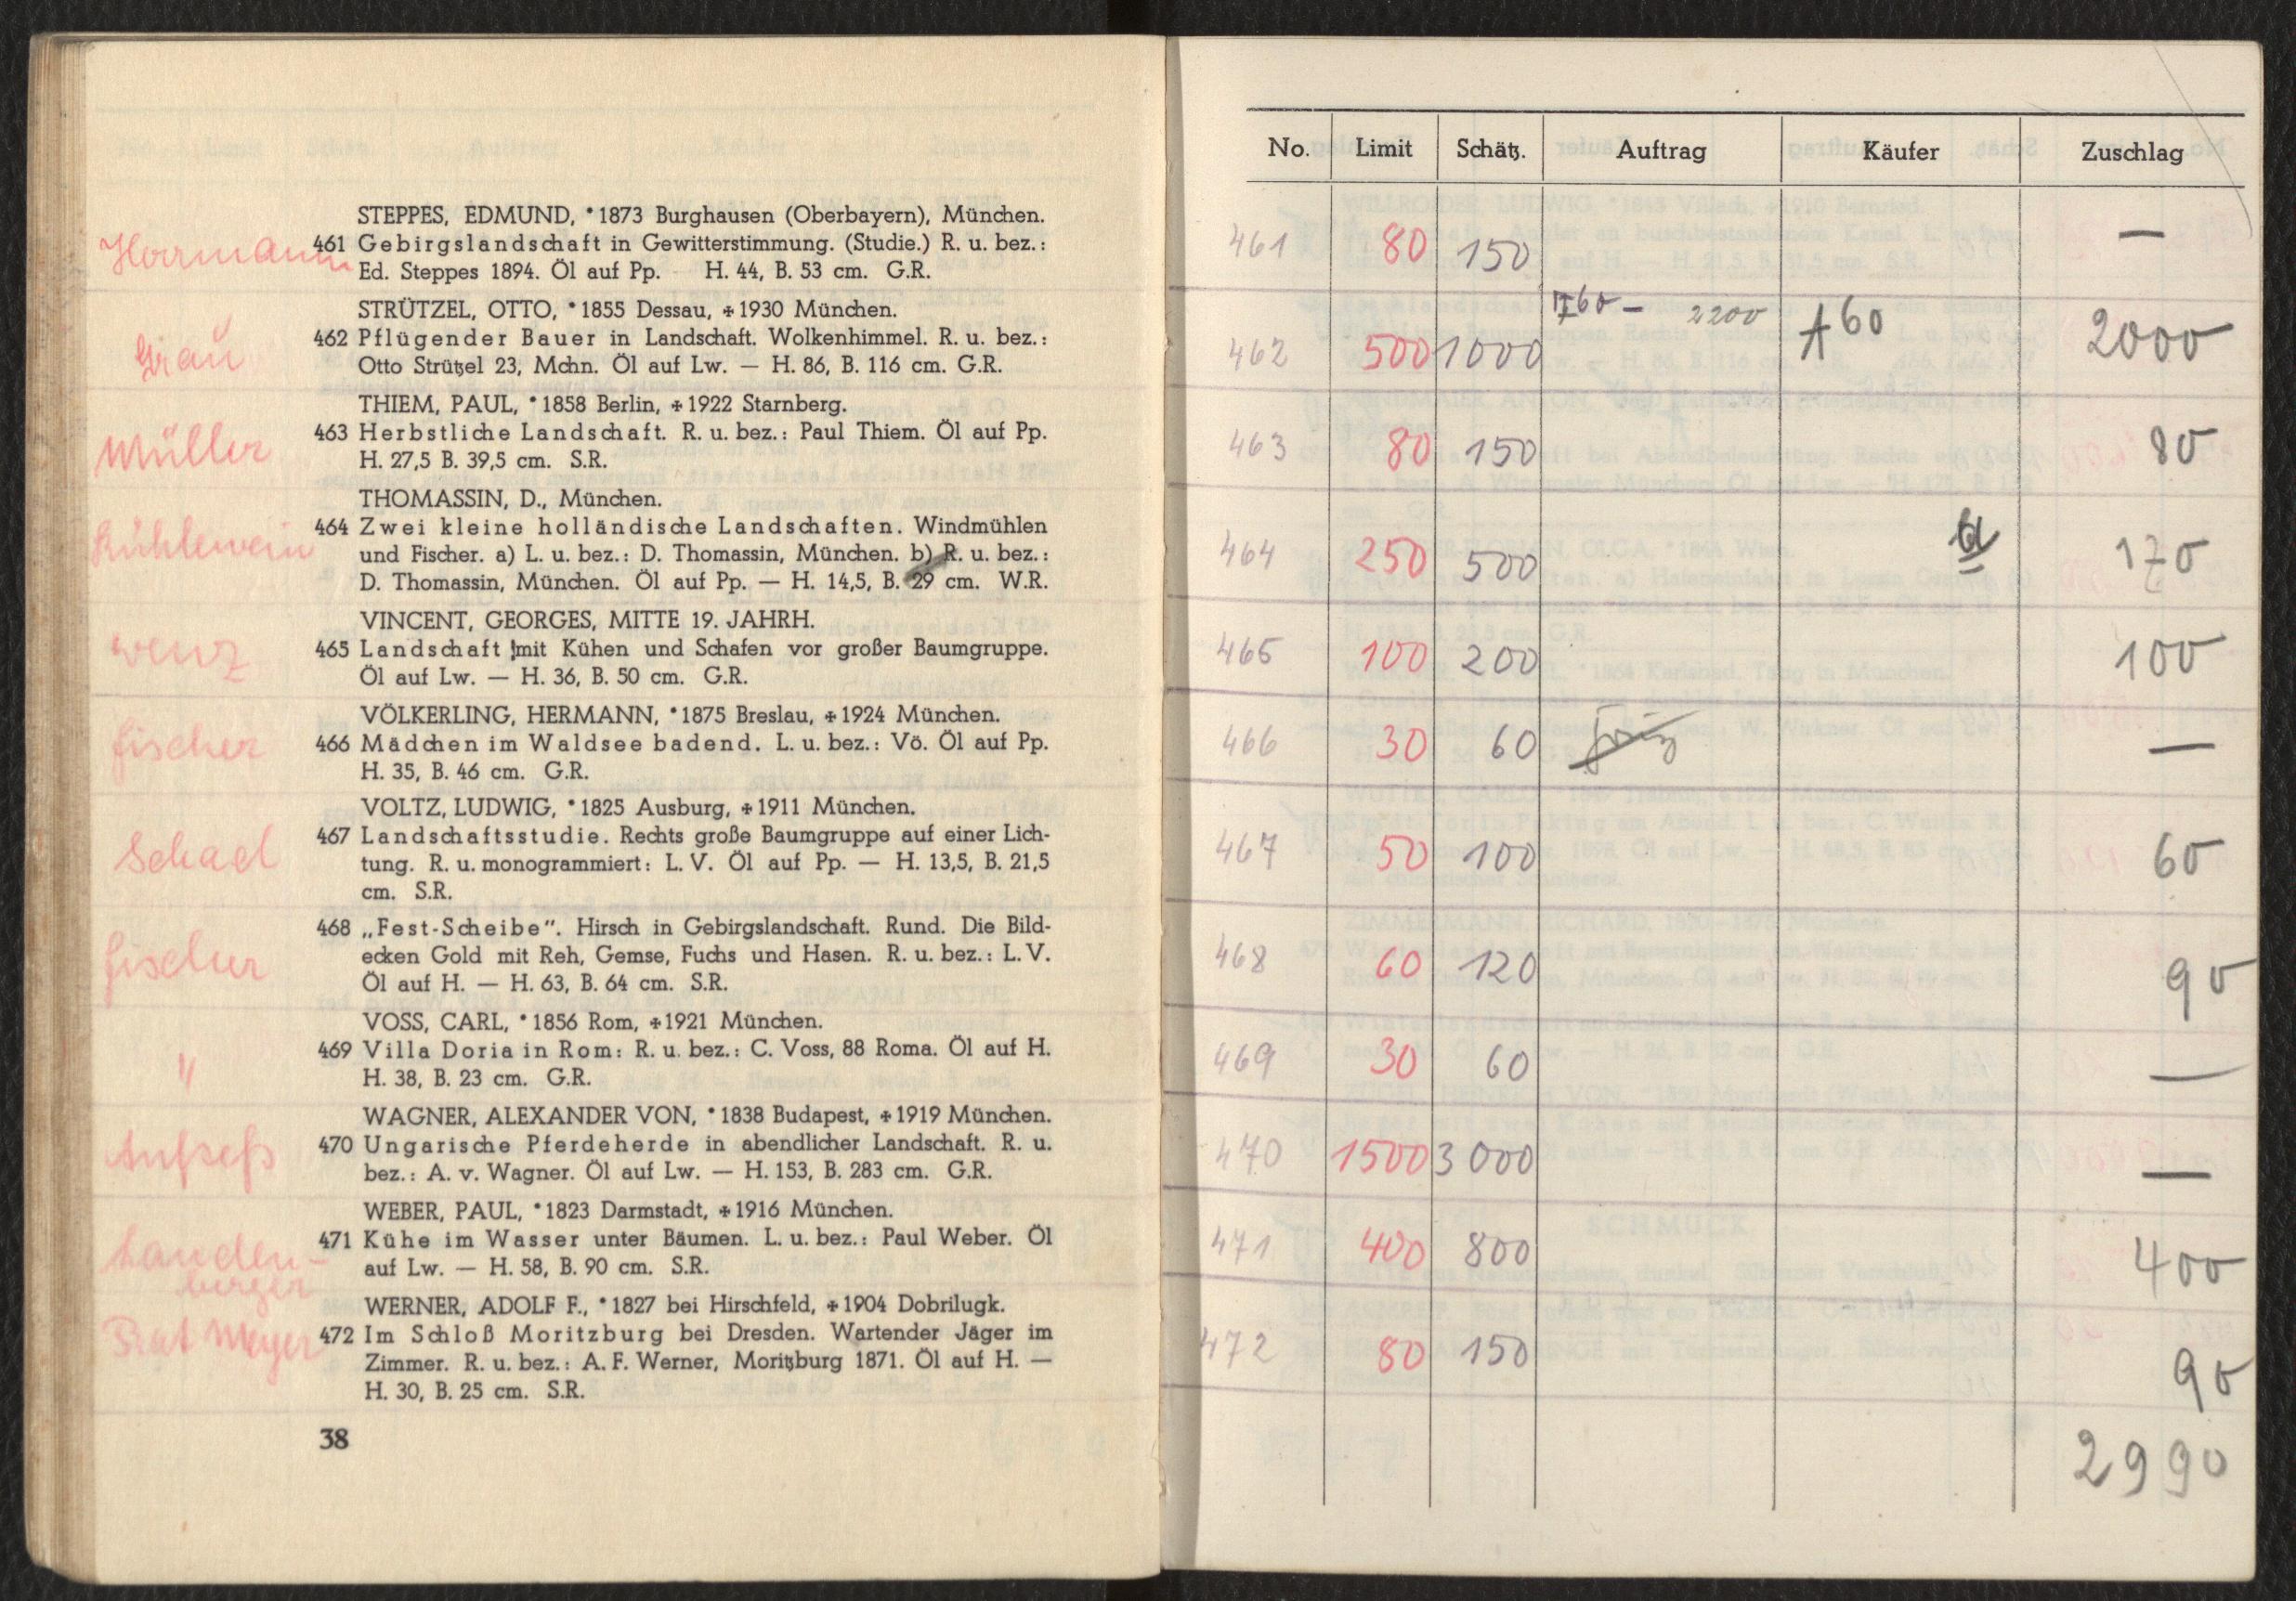 STEPPES, EDMUND, *1873 Burghausen (Oberbayern), München.
Herrmann
461 Gebirgslandschaft in Gewitterstimmung. (Studie.) R. u. bez.:
Ed. Steppes 1894. Öl auf Pp. H. 44, B. 53 cm. G.R.
STRÜTZEL, OTTO, *1855 Dessau, +1930 München.
Grau
462 Pflügender Bauer in Landschaft. Wolkenhimmel. R. u. bez.:
Otto Strützel 23, Mchn. Öl auf Lw. — H. 86, B. 116 cm. G.R.
THIEM, PAUL, *1858 Berlin, +1922 Starnberg.
Müller
463 Herbstliche Landschaft. R. u. bez.: Paul Thiem. Öl auf Pp.
H. 27,5 B. 39,5 cm. S.R.
THOMASSIN, D., München.
Kühlewein
464 Zwei kleine holländische Landschaften. Windmühlen
und Fischer. a) L. u. bez.: D. Thomassin, München. b) R. u. bez.:
D. Thomassin, München. Öl auf Pp. — H. 14,5, B. 29 cm. W.R.
VINCENT, GEORGES, MITTE 19. JAHRH.
Wenz
465 Landschaft mit Kühen und Schafen vor großer Baumgruppe.
Öl auf Lw. — H. 36, B. 50 cm. G.R.
VÖLKERLING, HERMANN, *1875 Breslau, +1924 München.
Fischer
466 Mädchen im Waldsee badend. L. u. bez.: Vö. Öl auf Pp.
H. 35, B. 46 cm. G.R.
VOLTZ, LUDWIG, *1825 Ausburg, +1911 München.
Schael
467 Landschaftsstudie. Rechts große Baumgruppe auf einer Lich-
tung. R. u. monogrammiert: L. V. Öl auf Pp. — H. 13,5, B. 21,5
cm. S.R.
Fischer
468 „Fest-Scheibe“. Hirsch in Gebirgslandschaft. Rund. Die Bild-
ecken Gold mit Reh, Gemse, Fuchs und Hasen. R. u. bez.: L. V.
Öl auf H. — H. 63, B. 64 cm. S.R.
VOSS, CARL, *1856 Rom, +1921 München.
"
469 Villa Doria in Rom: R. u. bez.: C. Voss, 88 Roma. Öl auf H.
H. 38, B. 23 cm. G.R.
WAGNER, ALEXANDER VON, *1838 Budapest, +1919 München.
Aufseß
470 Ungarische Pferdeherde in abendlicher Landschaft. R. u.
bez.: A. v. Wagner. Öl auf Lw. — H. 153, B. 283 cm. G.R.
WEBER, PAUL, *1823 Darmstadt, +1916 München.
Landen-
berger
471 Kühe im Wasser unter Bäumen. L. u. bez.: Paul Weber. Öl
auf Lw. — H. 58, B. 90 cm. S.R.
WERNER, ADOLF F., *1827 bei Hirschfeld, +1904 Dobrilugk.
Meyer
472 Im Schloß Moritzburg bei Dresden. Wartender Jäger im
Zimmer. R. u. bez.: A. F. Werner, Moritzburg 1871. Öl auf H. —
H. 30, B. 25 cm. S.R.
38
No. Limit Schätz. Auftrag Käufer Zuschlag
461 80 150 —
462 500 1000 760- 2200 A60 2000
463 80 150 80
464 250 500 170
465 100 200 100
466 30 60 —
467 50 100 60
468 60 120 90
469 30 60 —
470 1500 3000 —
471 400 800 400
472 80 150 90
2990